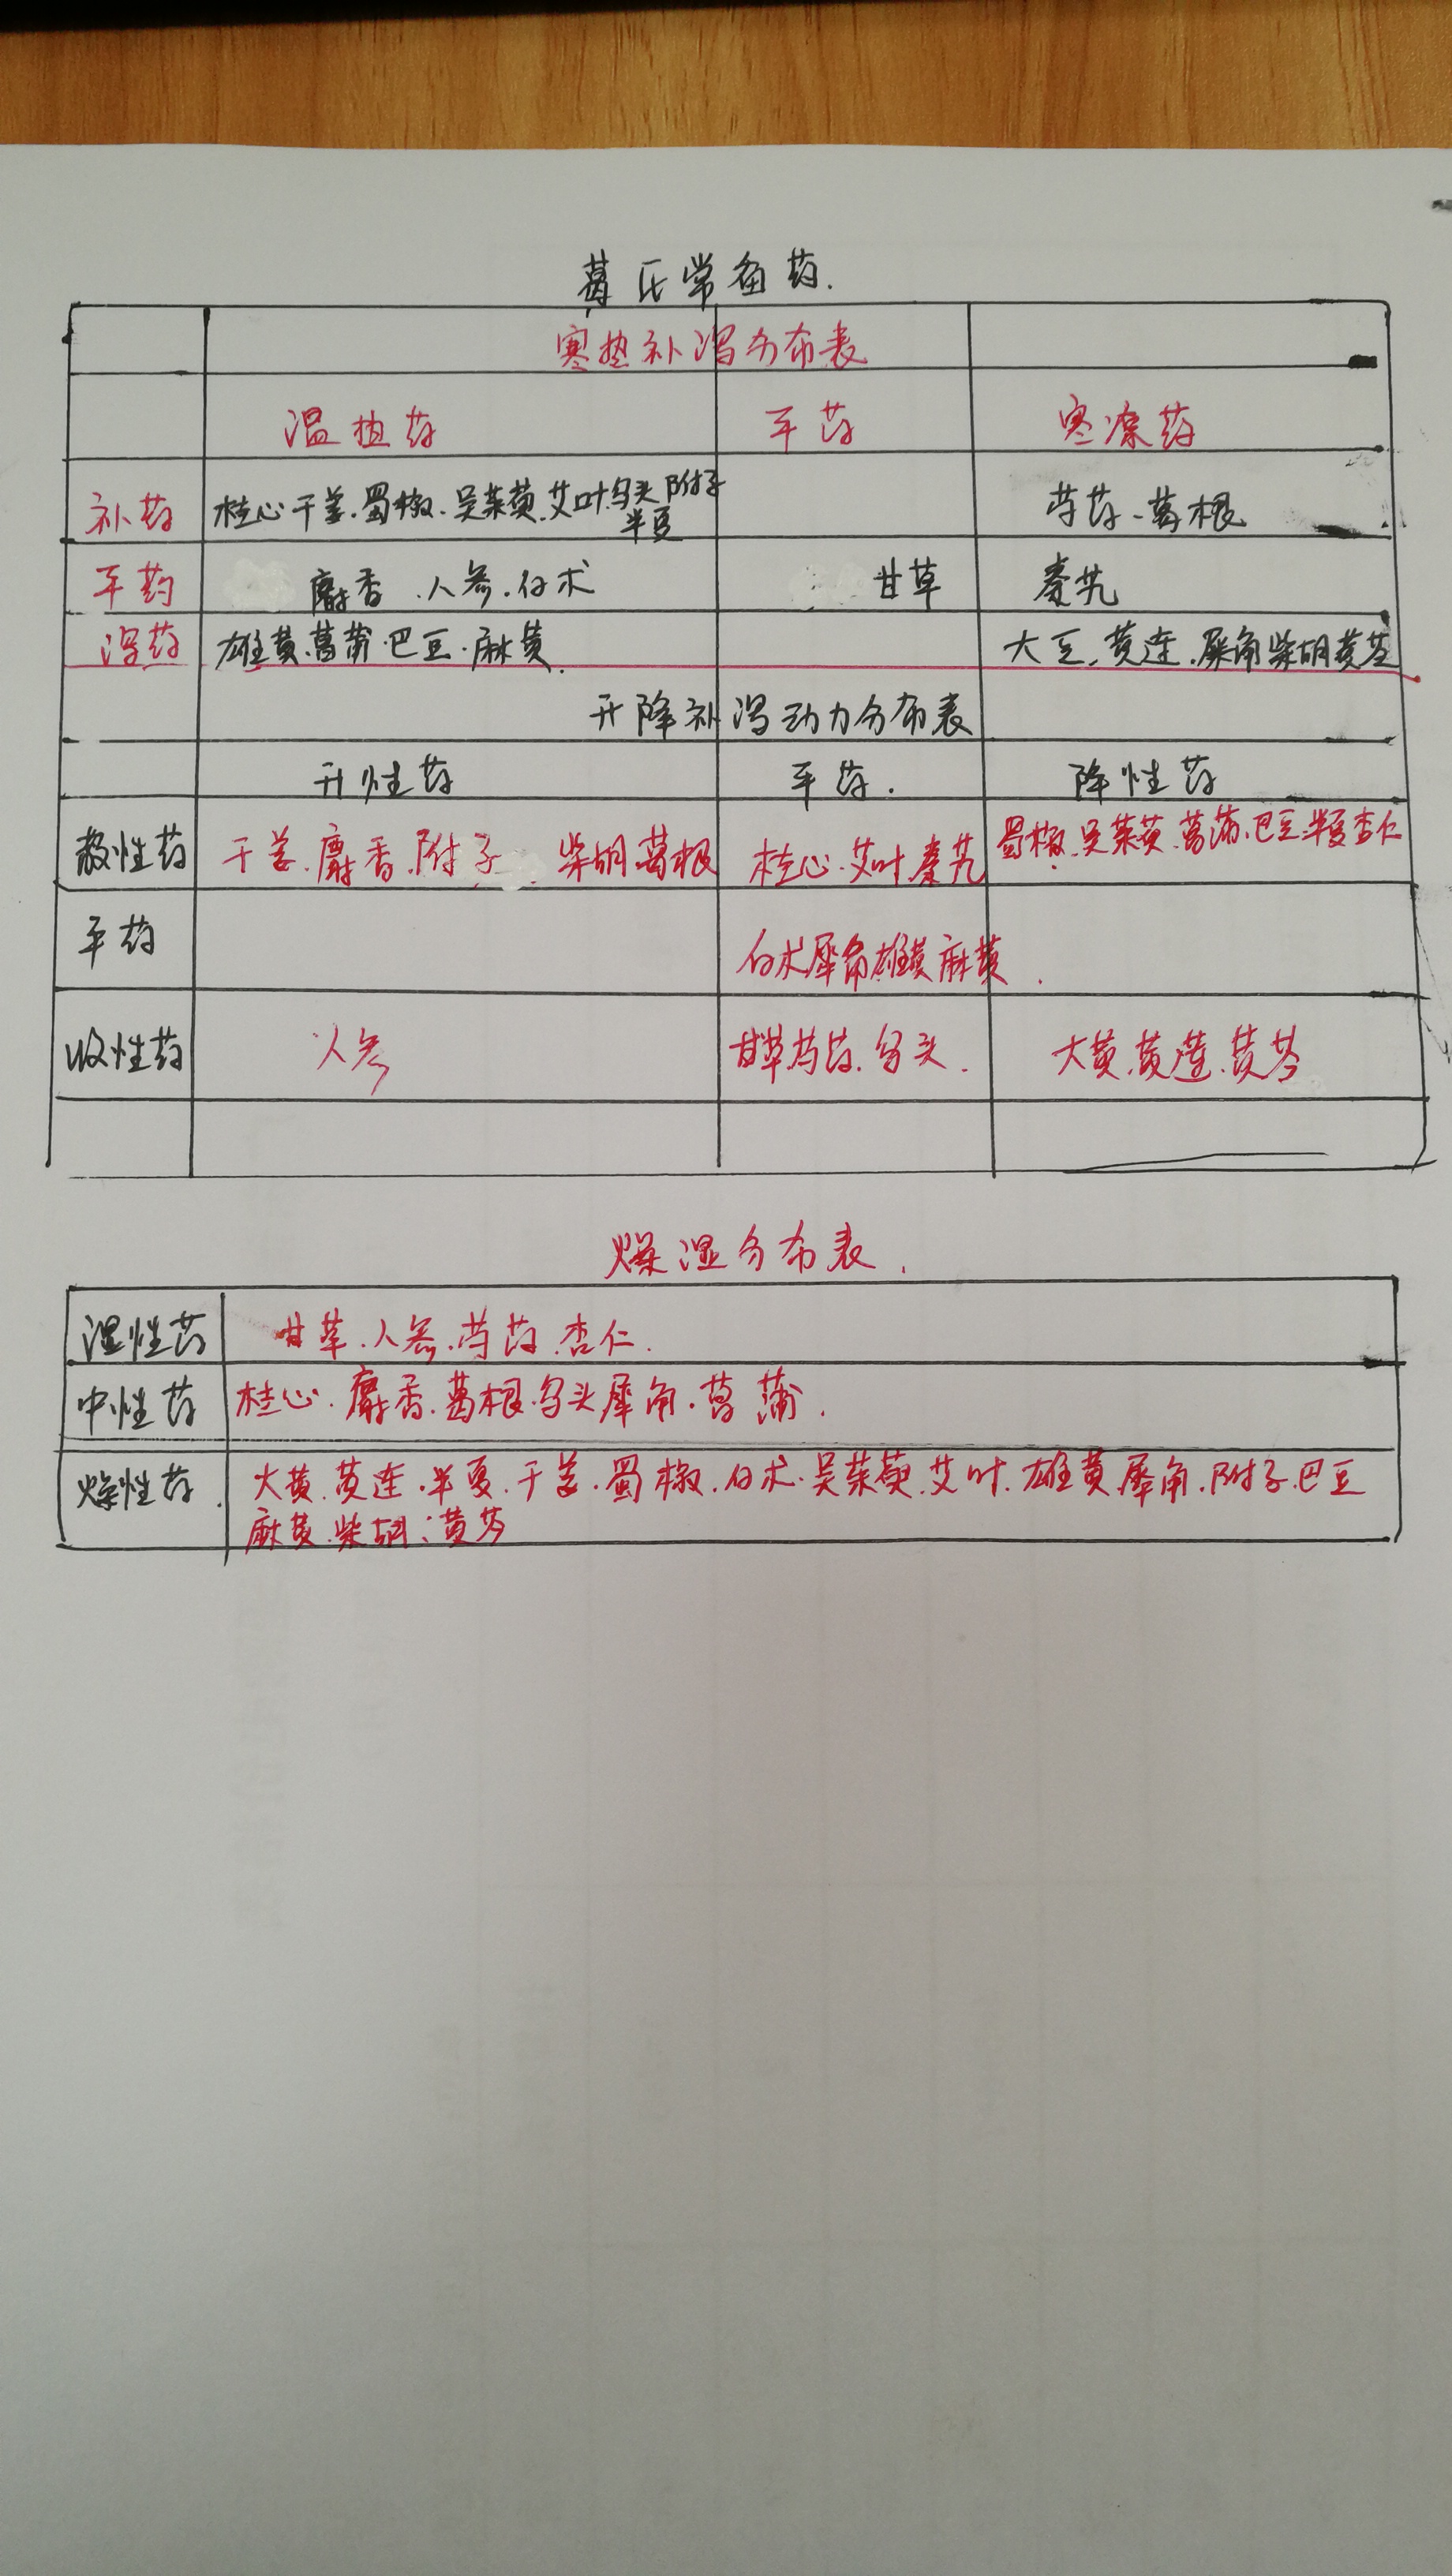 葛氏常备药.
寒热补泻分布表
温热药 平药 寒凉药
补药 桂心.干姜.蜀椒.吴茱萸.艾叶.乌头.附子 芍药、葛根
半夏
平药 麝香.人参.白术 甘草 秦艽
泻药 雄黄.菖蒲.巴豆.麻黄. 大豆.黄连.犀角柴胡黄芩
升降补泻动力分布表
升性药 平药. 降性药
散性药 干姜.麝香.附子.柴胡.葛根 桂心.艾叶.秦艽 蜀椒.吴茱萸.菖蒲.巴豆.半夏杏仁
平药 白术犀角雄黄麻黄.
收性药 人参 甘草.芍药.乌头. 大黄.黄莲.黄芩
燥湿分布表.
湿性药 甘草.人参.芍药.杏仁.
中性药 桂心.麝香.葛根.乌头犀角.菖蒲.
燥性药. 大黄.黄连.半夏.干姜.蜀椒.白术.吴茱萸.艾叶.雄黄犀角.附子.巴豆
麻黄.柴胡;黄芩